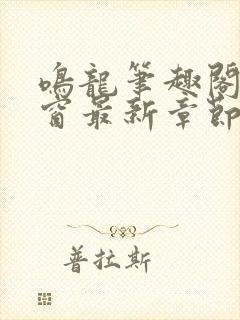 鳴龍筆趣閣
窗最新章節
普拉斯